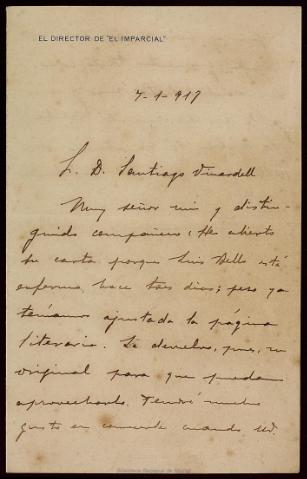 EL DIRECTOR DE "EL IMPARCIAL"
7-1-917
S. D. Santiago Vinardell
Muy señor mío y distin-
guido compañero: He abierto
su carta porque Luis Bello está
enfermo, hace tres días; pero ya
teníamos ajustada la página
literaria. Le devuelvo, pues, su
original para que puedan
aprovecharlo. Tendré mucho
gusto en conocerle cuando
Biblioteca Nacional de Madrid